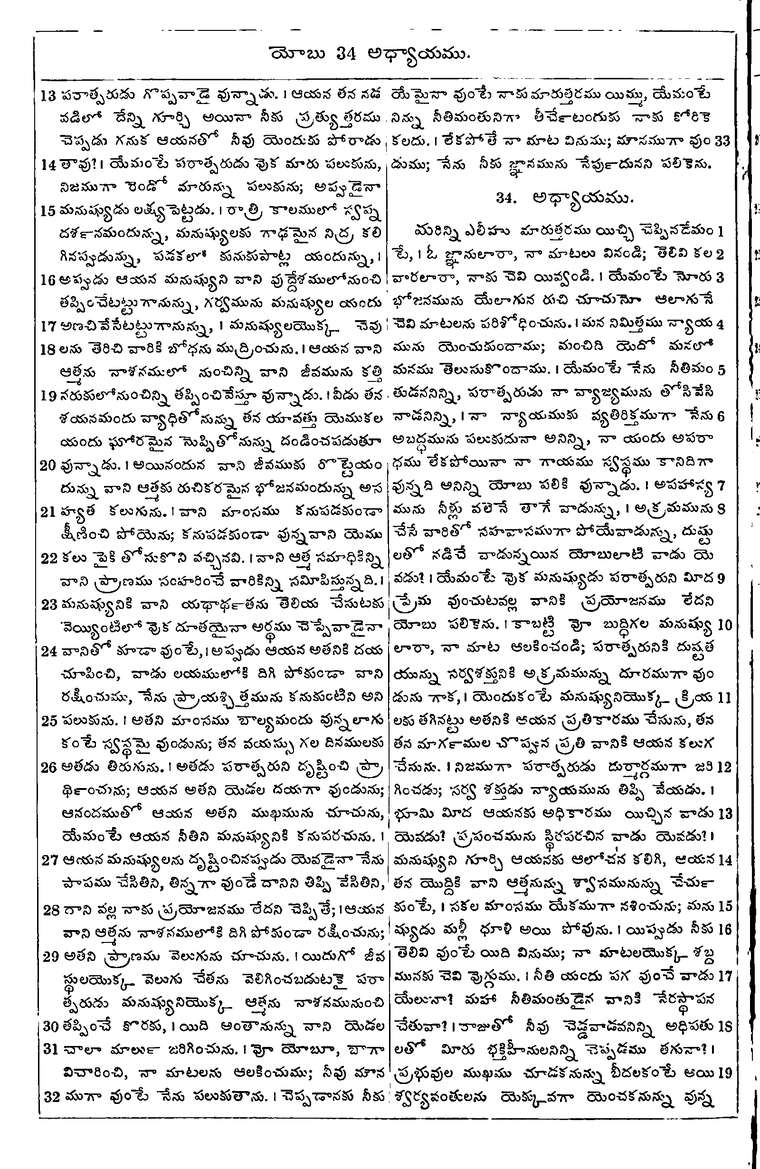 యోబు 34 అధ్యాయము.
13 పరాత్పరుడు గొప్పవాడై వున్నాడు. । ఆయన తన నడ
వడిలో దేన్ని గూర్చి అయినా నీకు ప్రత్యుత్తరము
చెప్పడు గనుక ఆయనతో నీవు యెందుకు పోరాడు
14 తావు? । యేమంటే పరాత్పరుడు వొక మారు పలుకును,
నిజముగా రెండో మారున్ను పలుకును; అప్పుడైనా
15 మనుష్యుడు లక్ష్యపెట్టడు. । రాత్రి కాలములో స్వప్న
దర్శనమందున్ను, మనుష్యులకు గాఢమైన నిద్ర కలి
గినప్పుడున్ను, పడకలో కునుకుపాట్ల యందున్ను, ।
16 అప్పుడు ఆయన మనుష్యుని వాని వుద్దేశములోనుంచి
తప్పించేటట్టుగానున్ను, గర్వమును మనుష్యుల యందు
17 అణచివేసేటట్టుగానున్ను, । మనుష్యులయొక్క చెవు
18 లను తెరిచి వారికి బోధను ముద్రించును. । ఆయన వాని
ఆత్మను నాశనములో నుంచిన్ని వాని జీవమును కత్తి
19 నరుకులోనుంచిన్ని తప్పించివేస్తూ వున్నాడు. । వీడు తన
శయనమందు వ్యాధితోనున్ను తన యావత్తు యెముకల
యందు ఘోరమైన నొప్పితోనున్ను దండించపడుతూ
20 వున్నాడు. । అయినందున వాని జీవముకు రొట్టెయం
దున్ను వాని ఆత్మకు రుచికరమైన భోజనమందున్ను అస
21 హ్యత కలుగును. । వాని మాంసము కనుపడకుండా
క్షీణించి పోయెను; కనుపడకుండా వున్నవాని యెము
22 కలు పైకి తోసుకొని వచ్చినవి. । వాని ఆత్మ సమాధికిన్ని
వాని ప్రాణము సంహరించే వారికిన్ని సమీపిస్తున్నది. ।
23 మనుష్యునికి వాని యథార్థతను తెలియ చేసుటకు
వెయ్యింటిలో వొక దూతయైనా అర్థము చెప్పేవాడైనా
24 వానితో కూడా వుంటే, । అప్పుడు ఆయన అతనికి దయ
చూపించి, వాడు లయములోకి దిగి పోకుండా వాని
రక్షించుము, నేను ప్రాయశ్చిత్తమును కనుకుంటిని అని
25 పలుకును. । అతని మాంసము బాల్యమందు వున్నలాగు
కంటే స్వస్థమై వుండును; తన వయస్సు గల దినములకు
26 అతడు తిరుగును. । అతడు పరాత్పరుని దృష్టించి ప్రా
ర్థించును; ఆయన అతని యెడల దయగా వుండును;
ఆనందముతో ఆయన అతని ముఖమును చూచును,
యేమంటే ఆయన నీతిని మనుష్యునికి కనుపరచును. ।
27 ఆయన మనుష్యులను దృష్టించినప్పుడు యెవడైనా నేను
పాపము చేసితిని, తిన్నగా వుండే దానిని తిప్పి వేసితిని,
28 దాని వల్ల నాకు ప్రయోజనము లేదని చెప్పితే; । ఆయన
వాని ఆత్మను నాశనములోకి దిగి పోకుండా రక్షించును;
29 అతని ప్రాణము వెలుగును చూచును. । యిదుగో జీవ
స్థులయొక్క వెలుగు చేతను వెలిగించబడుటకై పరా
త్పరుడు మనుష్యునియొక్క ఆత్మను నాశనమునుంచి
30 తప్పించే కొరకు, । యిది అంతానున్ను నాని యెడల
31 చాలా మార్లు జరిగించును. । వొ యోబూ, బాగా
విచారించి, నా మాటలను ఆలకించుము; నీవు మౌన
32 ముగా వుంటే నేను పలుకుతాను. । చెప్పడానకు నీకు
యేమైనా వుంటే నాకు మారుత్తరము యిమ్ము, యేమంటే
నిన్ను నీతిమంతునిగా తీర్చేటందుకు నాకు కోరికె
కలదు. । లేకపోతే నా మాట వినుము; మౌనముగా వుం 33
డుము; నేను నీకు జ్ఞానమును నేర్పుదునని పలికెను.
34. అధ్యాయము.
మరిన్ని ఎలీహు మారుత్తరము యిచ్చి చెప్పినదేమం 1
టే, । ఓ జ్ఞానులారా, నా మాటలు వినండి; తెలివి కల 2
వారలారా, నాకు చెవి యివ్వండి. । యేమంటే నోరు 3
భోజనమును యేలాగున రుచి చూచునో ఆలాగునే
చెవి మాటలను పరిశోధించును. । మన నిమిత్తము న్యాయ 4
మును యెంచుకుందాము; మంచిది యెదో మనలో
మనము తెలుసుకొందాము. । యేమంటే నేను నీతిమం 5
తుడననిన్ని, పరాత్పరుడు నా వ్యాజ్యమును తోసివేసి
నాడనిన్ని, । నా న్యాయముకు వ్యతిరిక్తముగా నేను 6
అబద్ధమును పలుకుదునా అనిన్ని, నా యందు అపరా
ధము లేకపోయినా నా గాయము స్వస్థము కానిదిగా
వున్నది అనిన్ని యోబు పలికి వున్నాడు. । అపహాస్య 7
మును నీళ్లు వలెనే తాగే వాడున్ను, । అక్రమమును 8
చేసే వారితో సహవాసముగా పోయేవాడున్ను, దుష్టు
లతో నడిచే వాడున్నయిన యోబులాటి వాడు యె
వడు? । యేమంటే వొక మనుష్యుడు పరాత్పరుని మీద 9
ప్రేమ వుంచుటవల్ల వానికి ప్రయోజనము లేదని
యోబు పలికెను. । కాబట్టి వొ బుద్ధిగల మనుష్యు 10
లారా, నా మాట ఆలకించండి; పరాత్పరునికి దుష్టత
యున్ను సర్వశక్తునికి అక్రమమున్ను దూరముగా వుం
డును గాక, । యెందుకంటే మనుష్యునియొక్క క్రియ 11
లకు తగినట్టు అతనికి ఆయన ప్రతికారము చేసును, తన
తన మార్గముల చొప్పున ప్రతి వానికి ఆయన కలుగ
చేసును. । నిజముగా పరాత్పరుడు దుర్మార్గముగా జరి 12
గించడు; సర్వ శక్తుడు న్యాయమును తిప్పి వేయడు. ।
భూమి మీద ఆయనకు అధికారము యిచ్చిన వాడు 13
యెవడు? ప్రపంచమును స్థిరపరచిన వాడు యెవడు? ।
మనుష్యుని గూర్చి ఆయనకు ఆలోచన కలిగి, ఆయన 14
తన యొద్దికి వాని ఆత్మనున్ను శ్వాసమునున్ను చేర్చు
కుంటే, । సకల మాంసము యేకముగా నశించును; మను 15
ష్యుడు మళ్లీ ధూళి అయి పోవును. । యిప్పుడు నీకు 16
తెలివి వుంటే యిది వినుము; నా మాటలయొక్క శబ్ద
మునకు చెవి వొగ్గుము. । నీతి యందు పగ వుంచే వాడు 17
యేలునా? మహా నీతిమంతుడైన వానికి నేరస్థాపన
చేతువా? । రాజుతో నీవు చెడ్డవాడవనిన్ని అధిపతు 18
లతో మీరు భక్తిహీనులనిన్ని చెప్పడము తగునా? ।
ప్రభువుల ముఖము చూడకనున్ను బీదలకంటే అయి 19
శ్వర్యవంతులను యెక్కువగా యెంచకనున్ను వున్న